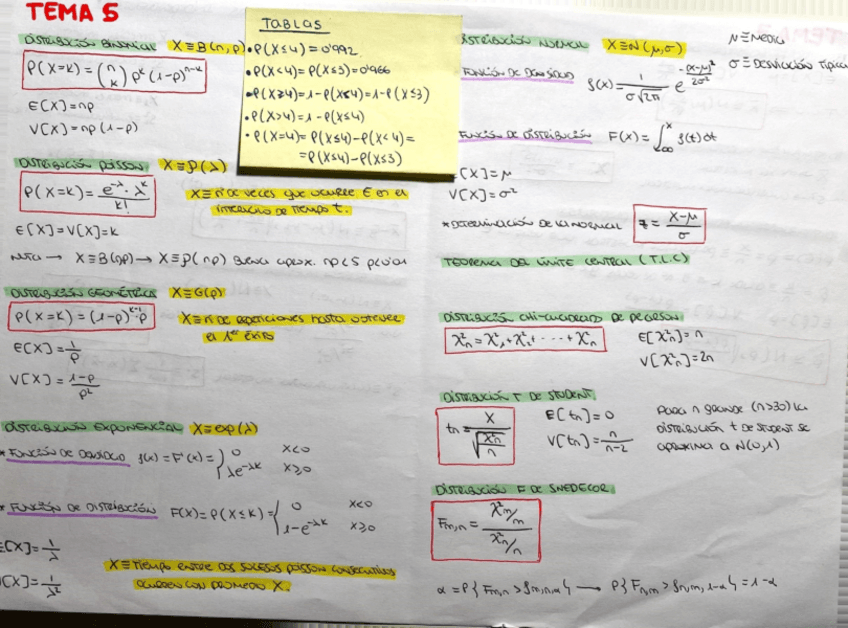 TEMA 5
DISTRIBUCIÓN BINOMIAL X≡B(n,p)
P(X=k) = (n k) p^k (1-p)^{n-k}
E[X]=np
V[X]=np(1-p)
TABLAS
•P(X≤4)=0'992
•P(X<4)=P(X≤3)=0'966
•P(X≥4)=1-P(X<4)=1-P(X≤3)
•P(X>4)=1-P(X≤4)
•P(X=4)=P(X≤4)-P(X<4)=
=P(X≤4)-P(X≤3)
DISTRIBUCIÓN POISSON X≡P(λ)
P(X=k)= e^{-λ}·λ^k / k!
X≡nº de veces que ocurre E en el
intervalo de tiempo t.
E[X]=V[X]=k
NOTA → X≡B(np) → X≡P(np) buena aprox. np<5 p<0'01
DISTRIBUCIÓN GEOMÉTRICA X≡G(p)
P(X=k)=(1-p)^{k-1}·p
X≡nº de repeticiones hasta obtener
el 1er éxito
E[X]=1/p
V[X]=1-p/p²
DISTRIBUCIÓN EXPONENCIAL X≡exp(λ)
* FUNCIÓN DE DENSIDAD f(x)=F'(x)= { 0 x<0
λe^{-λx} x≥0
* FUNCIÓN DE DISTRIBUCIÓN F(X)=P(X≤x)= { 0 x<0
1-e^{-λx} x≥0
E[X]=1/λ
V[X]=1/λ²
X≡tiempo entre dos sucesos poisson consecutivos
ocurren con promedio X.
DISTRIBUCIÓN NORMAL X≡N(μ,σ)
μ≡MEDIA
σ≡DESVIACIÓN TÍPICA
* FUNCIÓN DE DENSIDAD f(x)= 1/σ√2π e^{-(x-μ)²/2σ²}
FUNCIÓN DE DISTRIBUCIÓN F(x)=∫_{-∞}^{x} f(t)dt
E[X]=μ
V[X]=σ²
*DETERMINACIÓN DE LA NORMAL z = X-μ/σ
TEOREMA DEL LÍMITE CENTRAL (T.L.C)
DISTRIBUCIÓN CHI-CUADRADO DE PEARSON
X²n=X²1+X²2+ ····· +X²n
E[X²n]=n
V[X²n]=2n
DISTRIBUCIÓN T DE STUDENT
tn = X / √(X²n/n)
E[tn]=0
V[tn]=n/n-2
PARA n grande (n>30) la
DISTRIBUCIÓN t DE STUDENT se
aproxima a N(0,1)
DISTRIBUCIÓN F DE SNEDECOR.
Fm,n = X²m/m / X²n/n
α=P{Fm,n>fm,n,α} → P{Fn,m>fn,m,1-α}=1-α